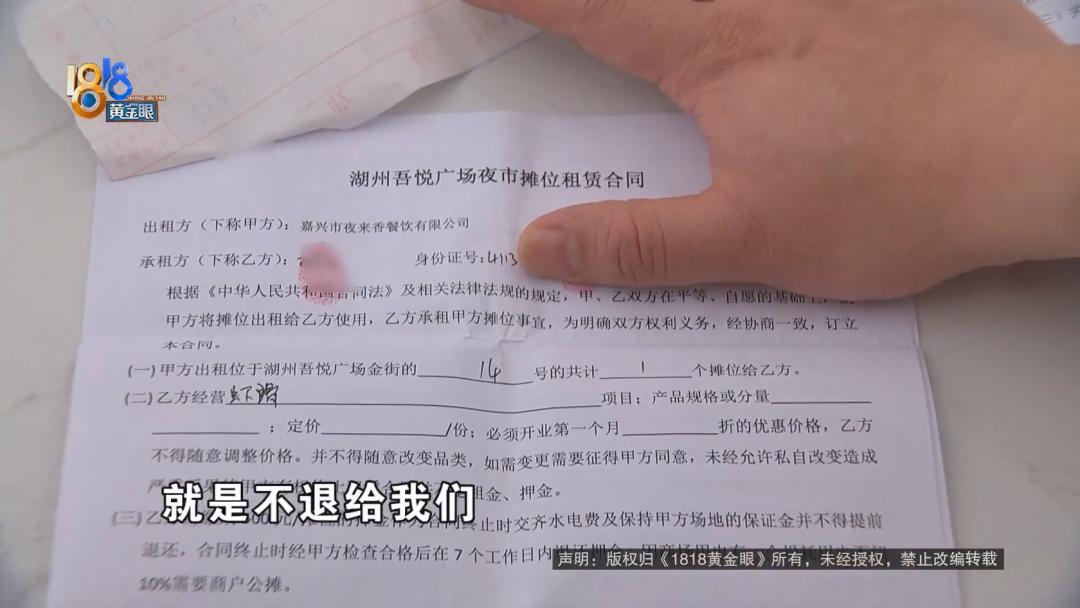 1818
黄金眼
HUANG JIN YAN
湖州吾悦广场夜市摊位租赁合同
出租方（下称甲方）：嘉兴市夜来香餐饮有限公司
承租方（下称乙方）： 身份证号：4113
根据《中华人民共和国合同法》及相关法律法规的规定，甲、乙双方在平等、自愿的基础上，就
甲方将摊位出租给乙方使用，乙方承租甲方摊位事宜，为明确双方权利义务，经协商一致，订立
本合同。
(一)甲方出租位于湖州吾悦广场金街的 14 号的共计 1 个摊位给乙方。
(二)乙方经营 项目；产品规格或分量
；定价 /份；必须开业第一个月 折的优惠价格，乙方
不得随意调整价格。并不得随意改变品类，如需变更需要征得甲方同意，未经允许私自改变造成
租金、押金。
就是不退给我们
(三)乙 终止时交齐水电费及保持甲方场地的保证金并不得提前
退还，合同终止时经甲方检查合格后在 7 个工作日内退还押金
10%需要商户公摊。
声明：版权归《1818黄金眼》所有，未经授权，禁止改编转载